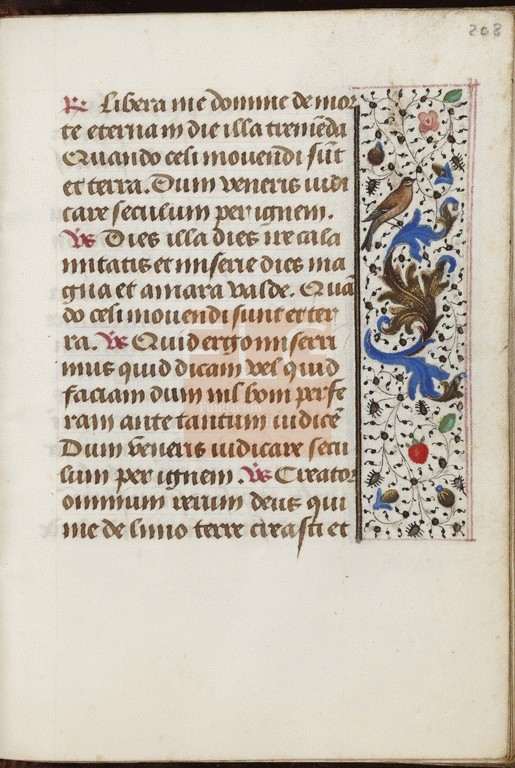 208
R. Libera me domine de mor
te eterna in die illa tremēda
Quando celi mouendi sūt
et terra. Dum veneris iudi
care seculum per ignem.
Vs Dies illa dies ire cala
mitatis et miserie dies ma
gna et amara valde. Quā
do celi mouendi sunt et ter
ra. Vs Quid ergo miserri
mus quid dicam vel quid
faciam dum nil boni perfe
ram ante tantum iudicē
Dum veneris iudicare secu
lum per ignem. Vs Creator
omnium rerum deus qui
me de limo terre creasti et